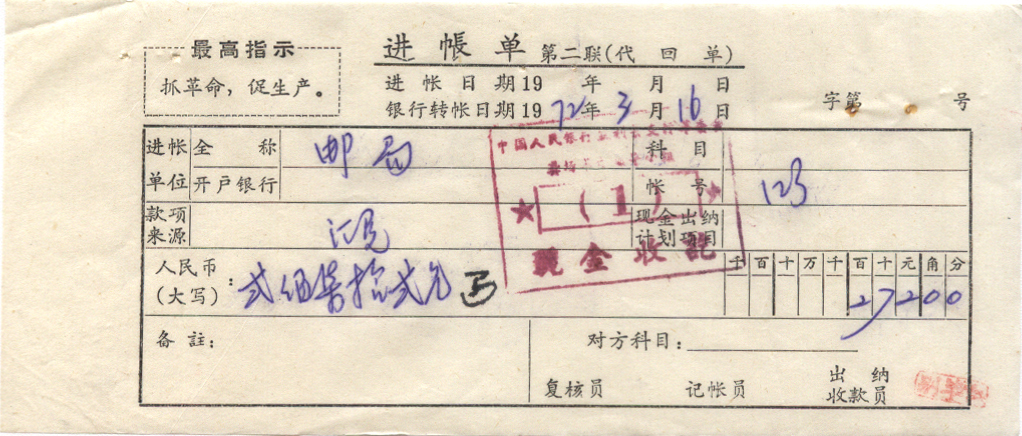 最高指示
抓革命，促生产。
进帐单 第二联(代回单)
进帐日期19 年 月 日
银行转帐日期1972年3月16日
字第 号
进帐单位 全称 邮局 科目
开户银行 帐号 123
款项来源 汇兑 现金出纳计划项目
中国人民银行
★ (1) ★
现金收讫
人民币(大写)： 弍佰柒拾弍元正
千百十万千百十元角分
27200
备註： 对方科目：
复核员 记帐员 出纳收款员